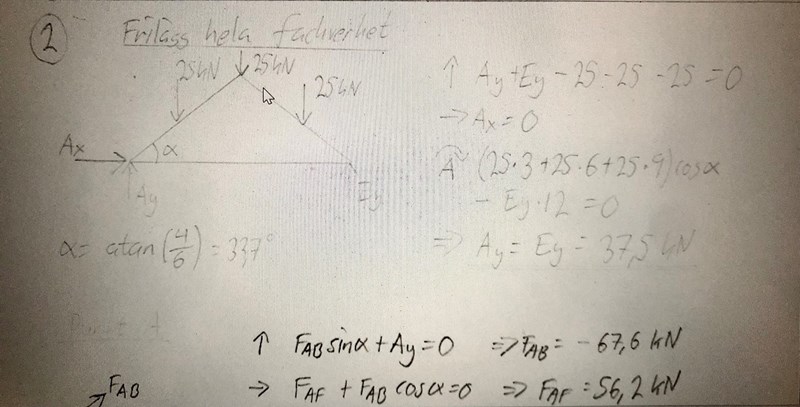 2 Frilägg hela fackverket
25kN 25kN 25kN
Ax
α
Ay
Ey
α = atan(4/6) = 33,7°
↑ Ay+Ey-25-25-25=0
→ Ax=0
A (25·3+25·6+25·9)cosα
- Ey·12=0
⇒ Ay = Ey = 37,5 kN
↑ FAB sinα + Ay = 0 ⇒ FAB = -67,6 kN
FAB
→ FAF + FAB cosα = 0 ⇒ FAF = 56,2 kN